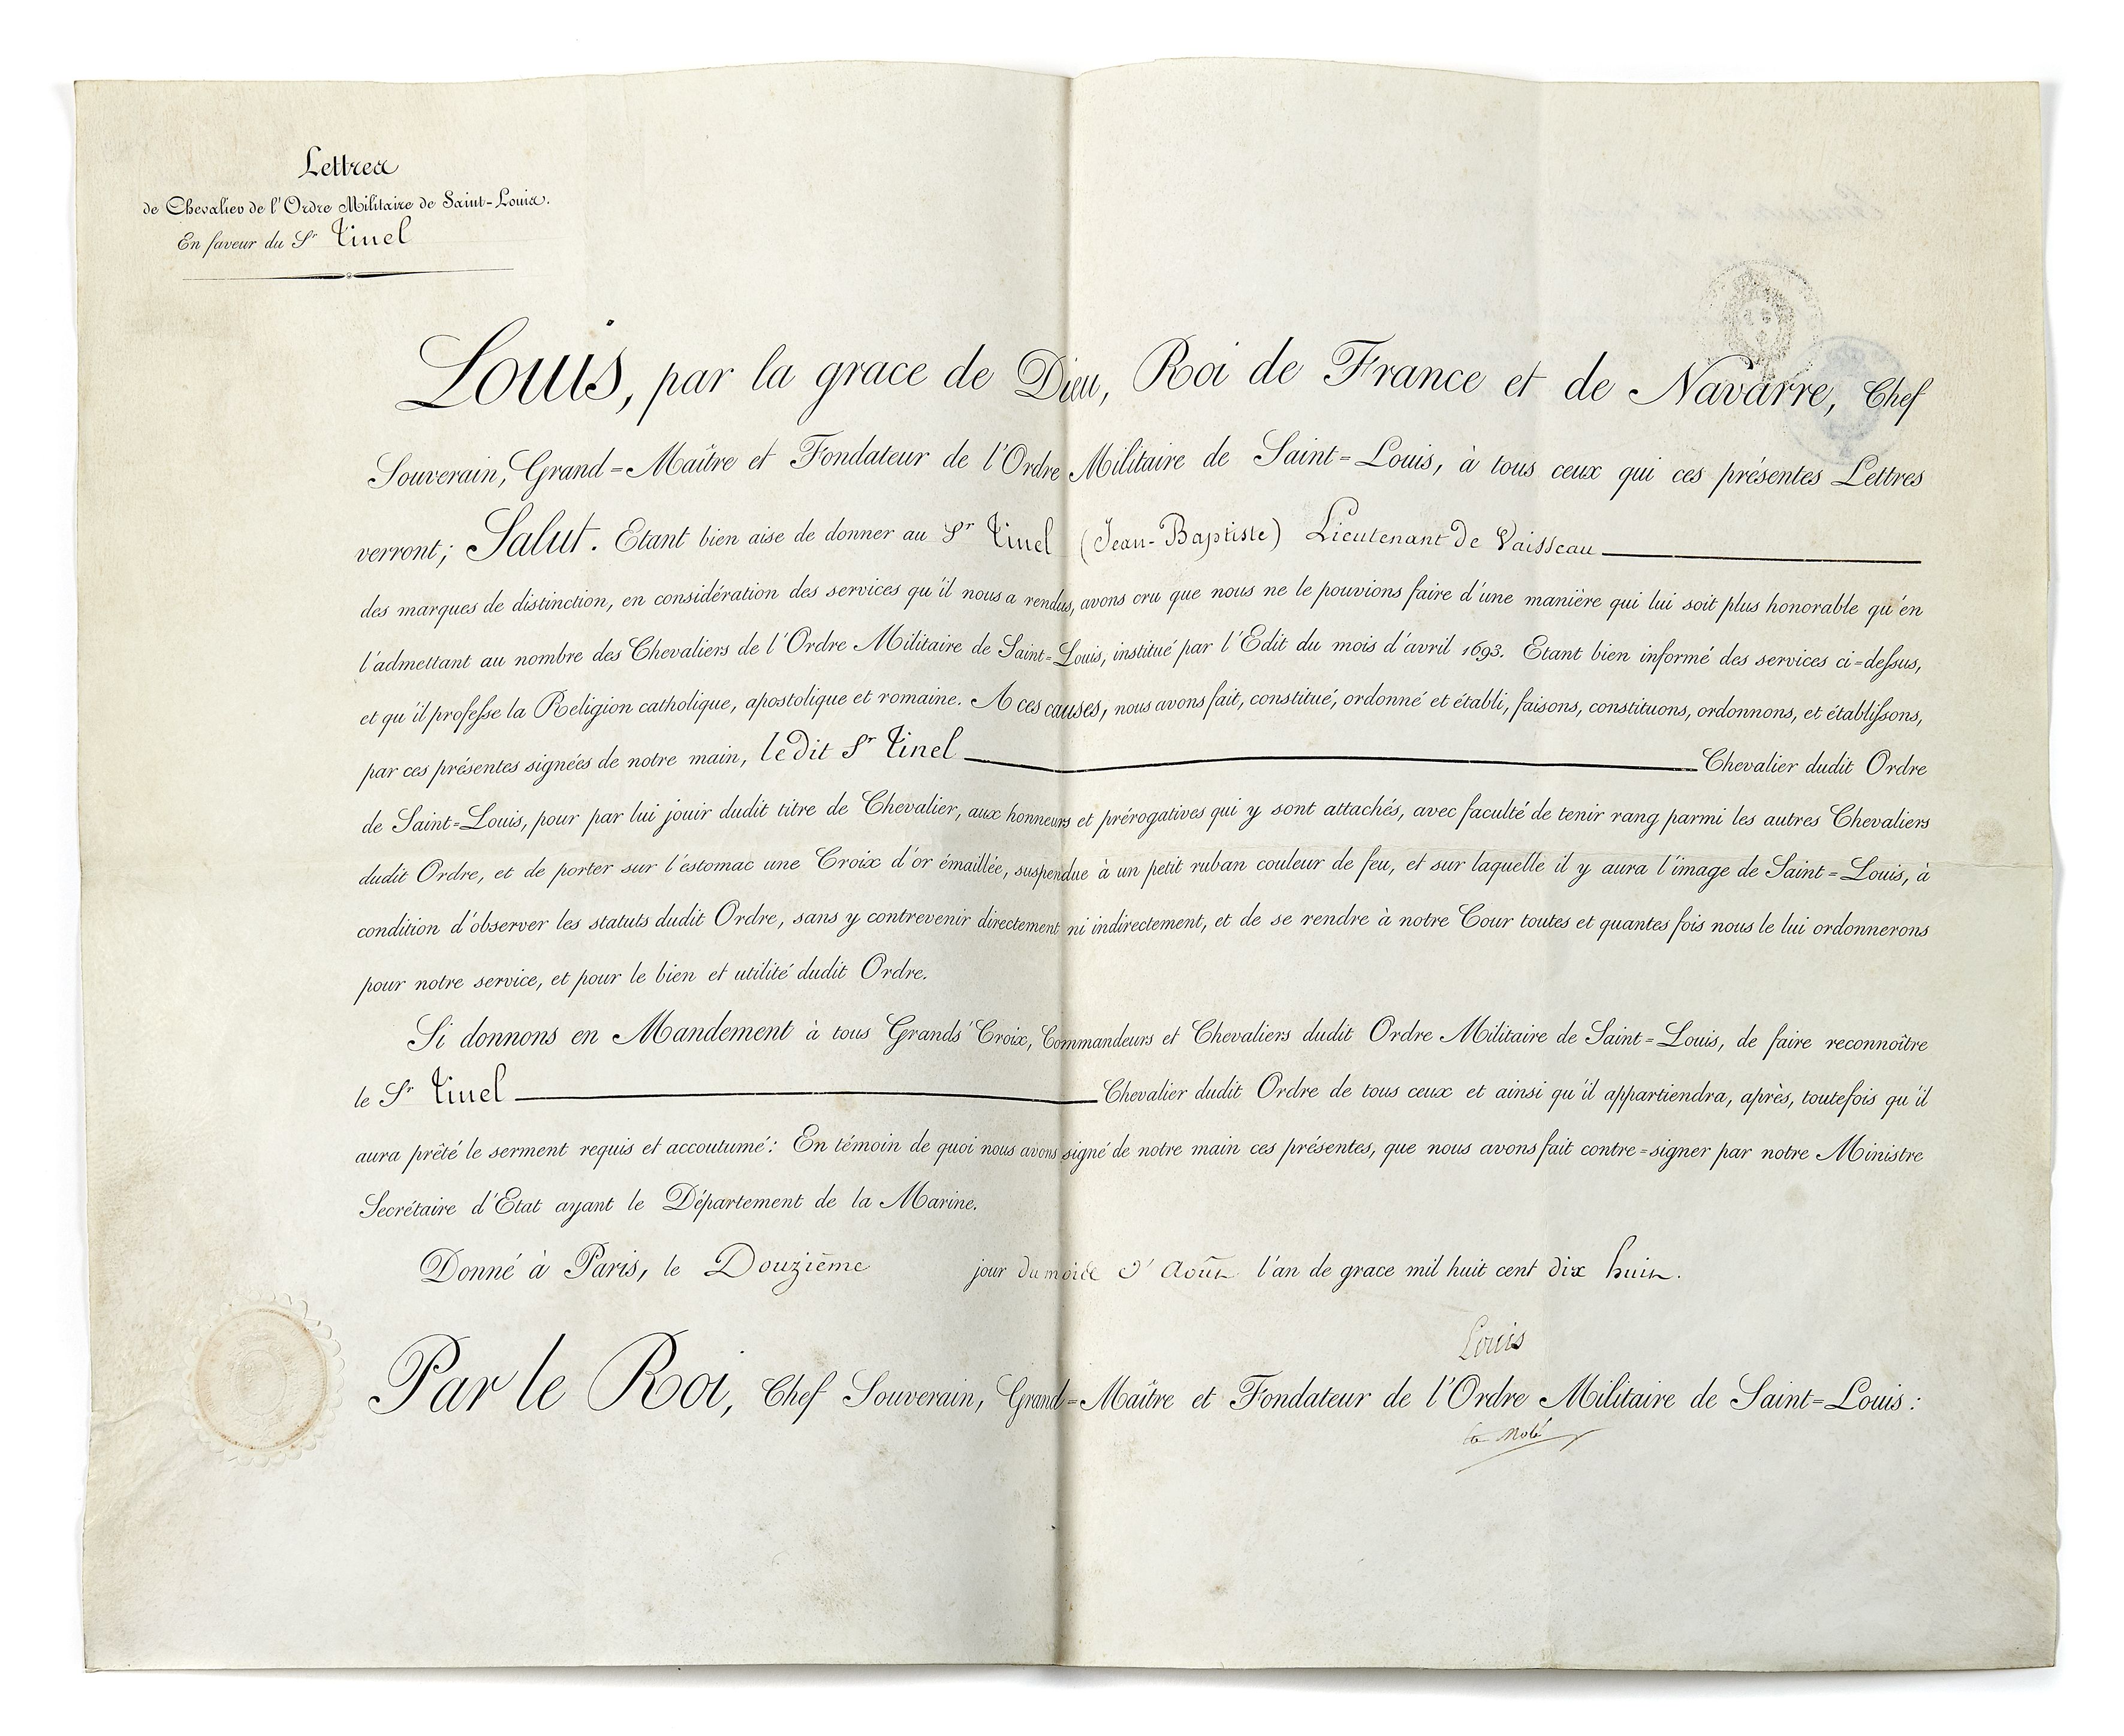 Lettres
de Chevalier de l'Ordre Militaire de Saint-Louis.
En faveur du Sr Tinel
Louis, par la grace de Dieu, Roi de France et de Navarre, Chef
Souverain, Grand=Maître et Fondateur de l'Ordre Militaire de Saint=Louis, à tous ceux qui ces présentes Lettres
verront; Salut. Etant bien aise de donner au Sr Tinel (Jean-Baptiste) Lieutenant de Vaisseau
des marques de distinction, en considération des services qu'il nous a rendus, avons cru que nous ne le pouvions faire d'une manière qui lui soit plus honorable qu'en
l'admettant au nombre des Chevaliers de l'Ordre Militaire de Saint=Louis, institué par l'Edit du mois d'avril 1693. Etant bien informé des services ci=deſsus,
et qu'il profeſse la Religion catholique, apostolique et romaine. A ces causes, nous avons fait, constitué, ordonné et établi, faisons, constituons, ordonnons, et établiſsons,
par ces présentes signées de notre main, ledit Sr Tinel Chevalier dudit Ordre
de Saint=Louis, pour par lui jouir dudit titre de Chevalier, aux honneurs et prérogatives qui y sont attachés, avec faculté de tenir rang parmi les autres Chevaliers
dudit Ordre, et de porter sur l'estomac une Croix d'or émaillée, suspendue à un petit ruban couleur de feu, et sur laquelle il y aura l'image de Saint=Louis, à
condition d'observer les statuts dudit Ordre, sans y contrevenir directement ni indirectement, et de se rendre à notre Cour toutes et quantes fois nous le lui ordonnerons
pour notre service, et pour le bien et utilité dudit Ordre.
Si donnons en Mandement à tous Grands'Croix, Commandeurs et Chevaliers dudit Ordre Militaire de Saint=Louis, de faire reconnoître
le Sr Tinel Chevalier dudit Ordre de tous ceux et ainsi qu'il appartiendra, après, toutefois qu'il
aura prêté le serment requis et accoutumé: En témoin de quoi nous avons signé de notre main ces présentes, que nous avons fait contre=signer par notre Ministre
Secrétaire d'Etat ayant le Département de la Marine.
Donné à Paris, le Douzième jour du mois d'Août l'an de grace mil huit cent dix huit.
Louis
Par le Roi, Chef Souverain, Grand=Maître et Fondateur de l'Ordre Militaire de Saint=Louis:
Molé